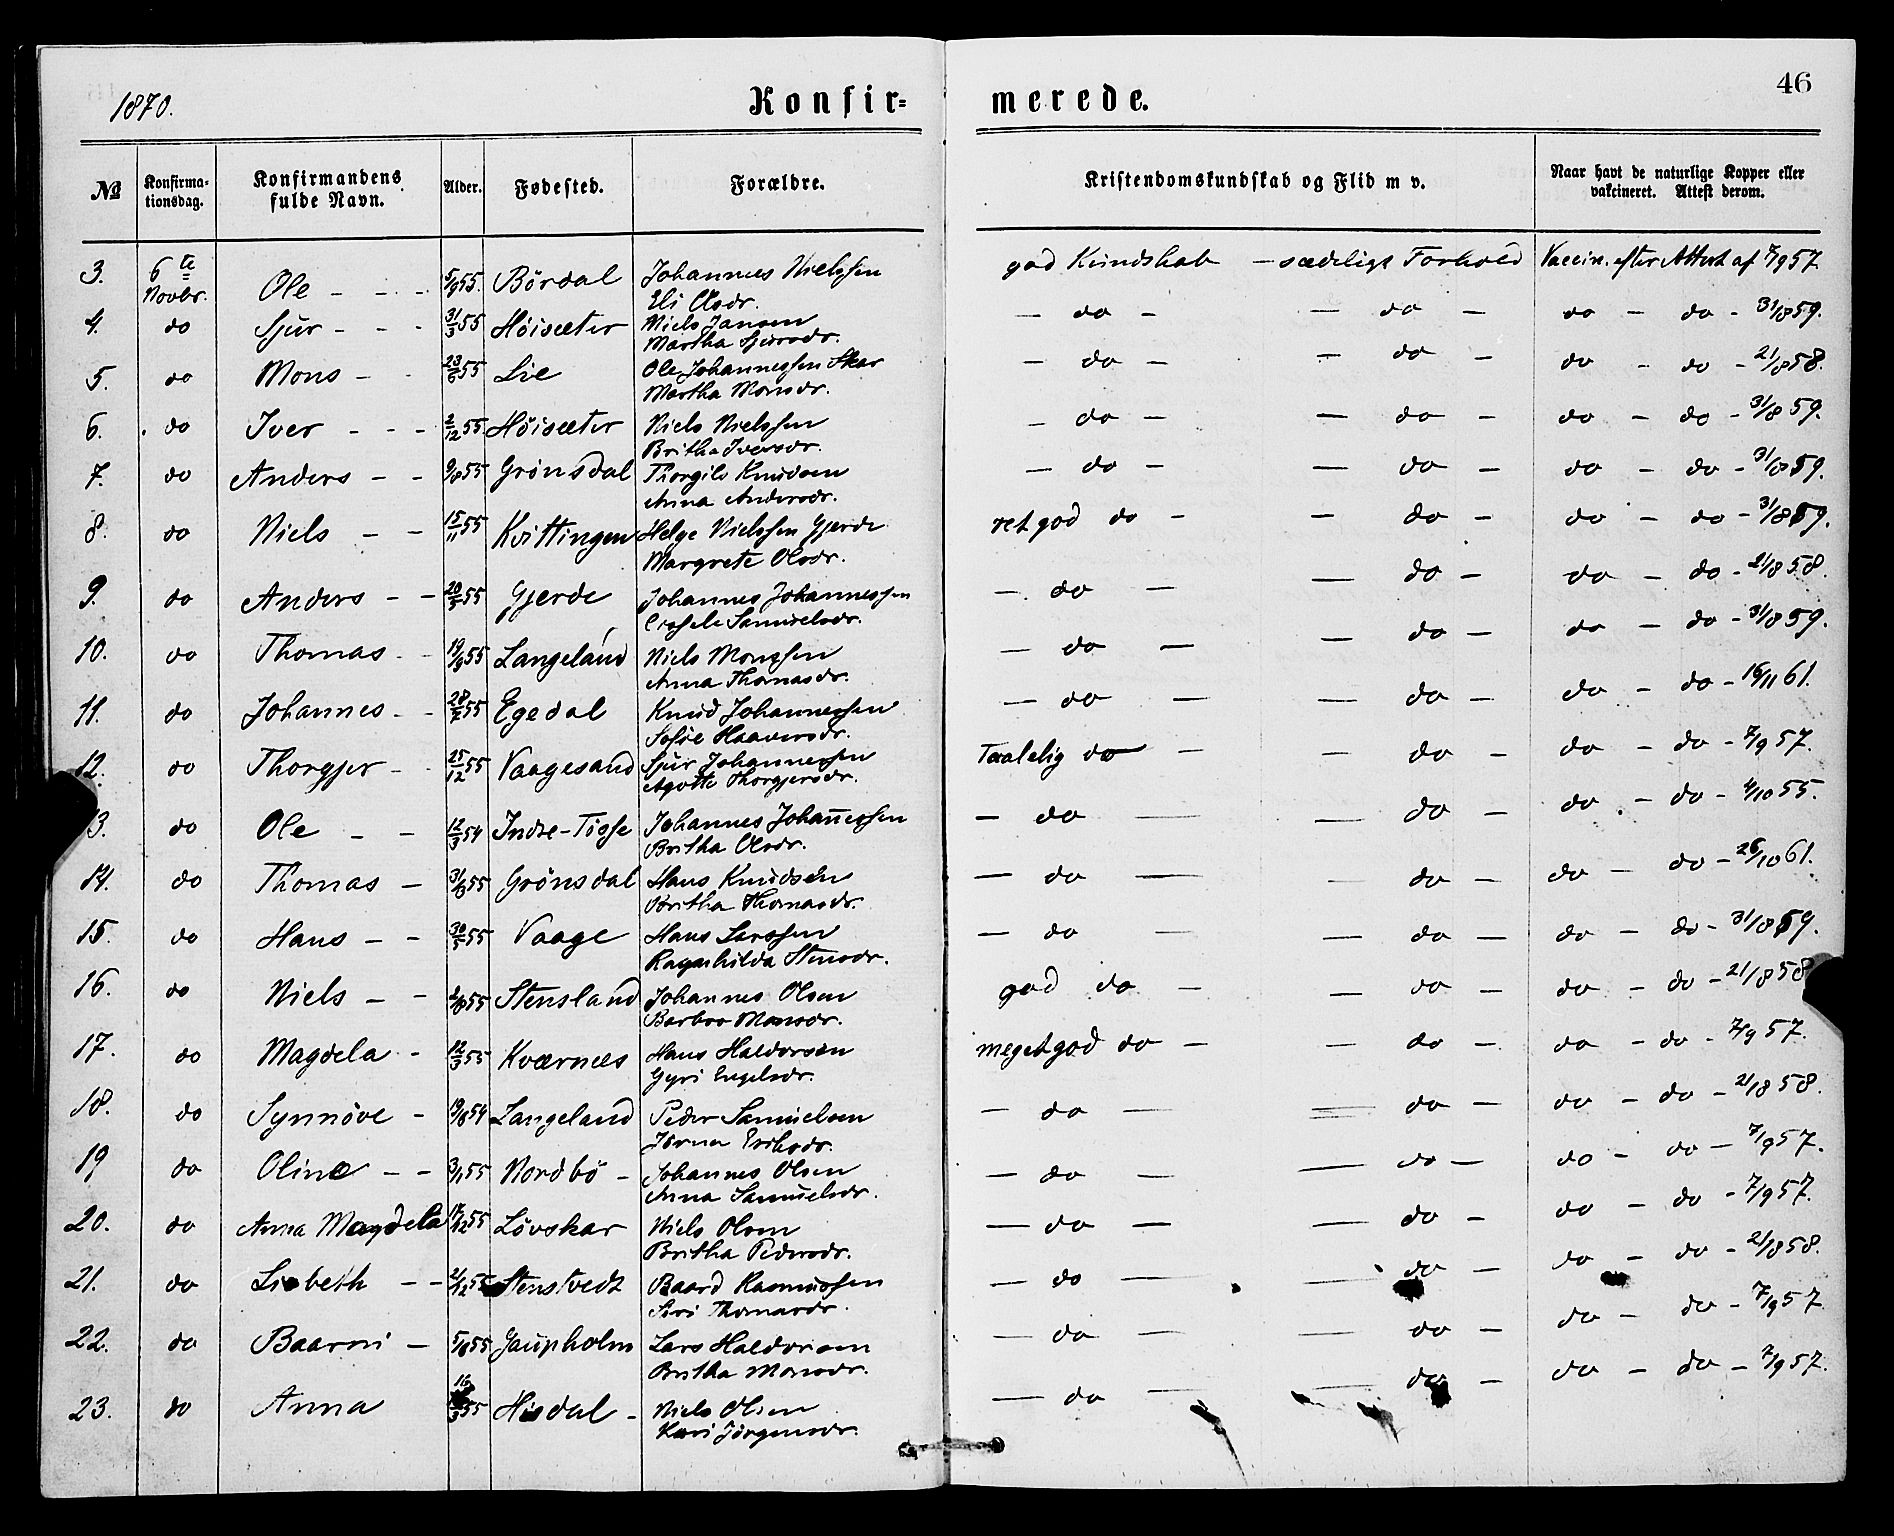 1870.
Konfir=
merede.
46
№
Konfirma-
tionsdag.
Konfirmandens
fulde Navn.
Alder.
Fødested.
Forældre.
Kristendomskundskab og Flid m v.
Naar havt de naturlige Kopper eller
vakcineret. Attest derom.
3. 6te Novbr. Ole - - - 5/9 55. Bördal Johannes Nielssen
Eli Olsdr.
god Kundskab - sædeligt Forhold Vaccin. efter Attest af 7/9 57.
4. do Sjur - - - 31/3 55 Höisæter Niels Jansen
Martha Sjursdr.
- do - - do - do - do - 31/8 59.
5. do Mons - - 23/6 55 Lie Ole Johannessen Skar
Martha Monsdr.
- do - - do - do - do - 21/8 58.
6. do Iver - - - 2/12 55. Höisæter Niels Nielssen
Britha Iversdr.
- do - - do - do - do - 31/8 59.
7. do Anders - - 9/8 55 Grönsdal Thorgils Knudsen
Anna Andersdr.
- do - - do - do - do - 31/8 59.
8. do Niels - - 15/11 55 Kvittingen Helge Nielssen Gjerde
Margrete Olsdr.
ret god do - - do - do - do - 31/8 59.
9. do Anders - - 20/5 55 Gjerde Johannes Johannessen
Samuelsdr.
- do - - do - do - do - 21/8 58.
10. do Thomas - - 19/9 55 Langeland Niels Monssen
Anna Thomasdr.
- do - - do - do - do - 31/8 59.
11. do Johannes - - 28/7 55 Egedal Knud Johannessen
Sofie Haaversdr.
- do - - do - do - do - 16/11 61.
12. do Thorgjer - - 25/12 55 Vaagesand Sjur Johannessen
Agotte Thorgjersdr.
Taalelig do - - do - do - do - 7/9 57.
13. do Ole - - 12/3 54 Indre-Tösse Johannes Johannessen
Britha Olsdr.
- do - - do - do - do - 4/10 55.
14. do Thomas - 31/3 55 Grönsdal Hans Knudsen
Britha Thomasdr.
- do - - do - do - do - 26/10 61.
15. do Hans - - 30/5 55 Vaage Hans Larssen
Ragnhilda Stensdr.
- do - - do - do - do - 31/8 59.
16. do Niels - - 2/8 55 Stensland Johannes Olsen
Barbro Monsdr.
god do - - do - do - do - 21/8 58
17. do Magdela - 12/3 55 Kværnæs Hans Haldorsen
Gyri Engelsdr.
meget god do - - do - do - do - 7/9 57.
18. do Synnöve - 19/8 54 Langeland Peder Samuelsen
Eriksdr.
- do - - do - do - do - 21/8 58.
19 do Oline - - 3/11 55 Nordbö - Johannes Olsen
Anna Samuelsdr.
- do - - do - do - do - 7/9 57.
20. do Anna Magdela 17/12 55 Lövskar Niels Olsen
Britha Pedersdr.
- do - - do - do - do - 7/9 57.
21. do Lisbeth - - 21/12 55 Stenstvedt Baard Rasmussen
Siri Thomasdr.
- do - - do - do - do - 21/8 58.
22. do Baarni - 5/8 55 Gaupholm Lars Haldorsen
Britha Monsdr.
- do - - do - do - do - 7/9 57
23. do Anna 16/3 55 Hisdal - Niels Olsen
Kari Jörgensdr.
- do - - do - do - do - 7/9 57.